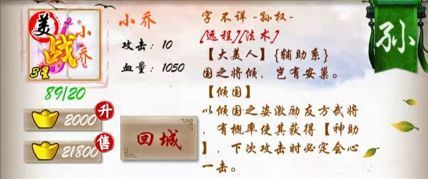 小乔
字 不详-孙权-
孙
美
战
小乔
3星
攻击:10
血量:1050
[远程][法术]
【大美人】{辅助系}
国之将倾,岂有安巢。
89/20
【倾国】
2000
升
以倾国之姿激励友方武将
,有概率使其获得【神助
21800
售
回城
】,下次攻击时必定会心
一击。